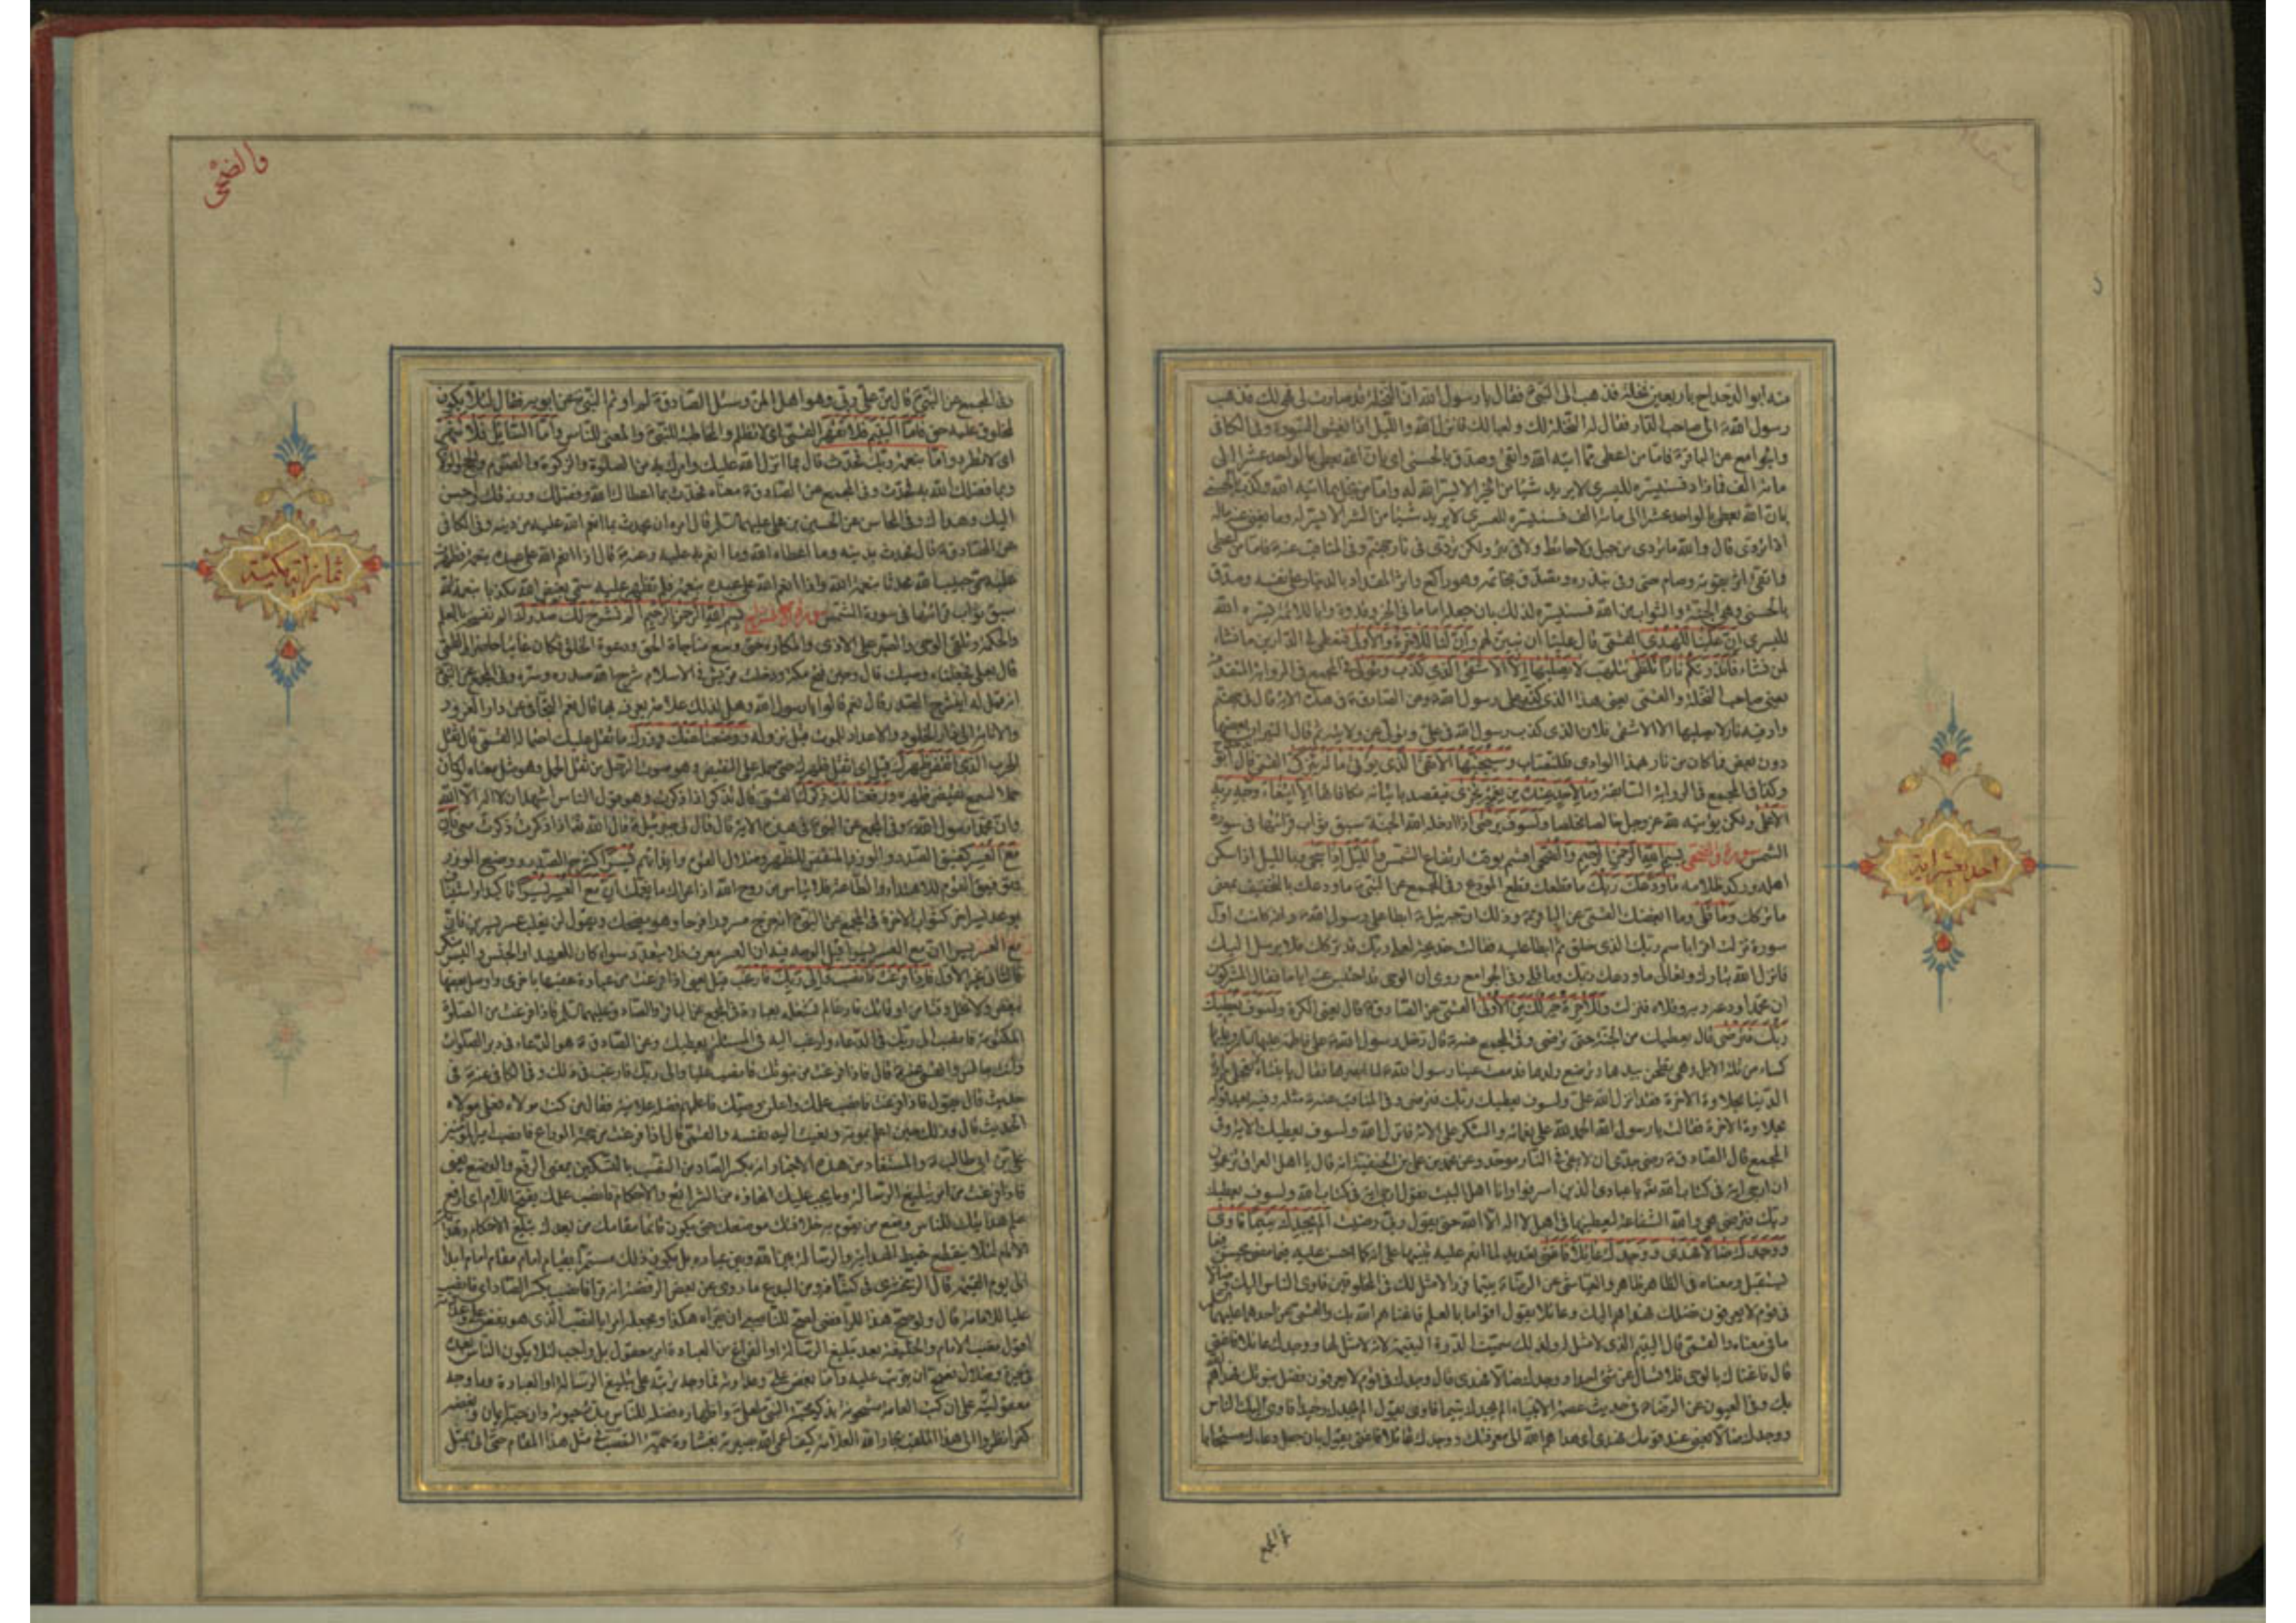 منه ابو الدحداح باربعين نخلة فذهب الى النبي فقال يا رسول الله ان النخلة قد صارت لى فهى لك فذهب
رسول الله الى صاحب الدار فقال له النخلة لك ولعيالك فانزل الله والليل اذا يغشى السورة وفى الكافى
والجوامع عن الباقر فاما من اعطى مما اتيه الله واتقى وصدق بالحسنى اى بان الله يعطى بالواحد عشرا الى
مائة الف فما زاد فسنيسره لليسرى لا يريد شيئا من الخير الا يسر الله له واما من بخل بما اتيه الله وكذب بالحسنى
بان الله يعطى بالواحد عشرا الى مائة الف فسنيسره للعسرى لا يريد شيئا من الشر الا يسر له وما يغنى عنه ماله
اذا تردى قال والله ما تردى من جبل ولا حائط ولا فى بئر ولكن تردى فى نار جهنم وفى المناقب عنه فاما من اعطى
واتقى اثر بقوته وصام حتى وفى بنذره وتصدق بخاتمه وهو راكع واثر المقداد بالدينار على نفسه وصدق
بالحسنى وهى الجنة والثواب من الله فسنيسره لذلك بان جعله اماما فى الخير وقدوة وابا للائمة يسره الله
لليسرى ان علينا للهدى القمى قال علينا ان نبين لهم وان لنا للاخرة والاولى فنعطى فى الدارين ما نشاء
لمن نشاء فانذرتكم نارا تلظى تتلهب لا يصليها الا الاشقى الذى كذب وتولى فى المجمع فى الرواية السابقة
يعنى صاحب النخلة والقمى يعنى هذا الذى على رسول الله وعن الصادق فى هذه الاية قال فى جهنم
واد فيه نار لا يصليها الا الاشقى فلان الذى كذب رسول الله فى على وتولى عن ولايته ثم قال النيران بعضها
دون بعض فما كان من نار هذا الوادى فللنصاب وسيجنبها الاتقى الذى يؤتى ماله يتزكى القمى قال ابو
وكذا فى المجمع فى الرواية السابقة وما لاحد عنده من نعمة تجزى فيقصد بايتائه مكافاتها الا ابتغاء وجه ربه
الاعلى ولكن يؤتيه لله عز وجل خالصا مخلصا ولسوف يرضى اذا ادخله الله الجنة سبق ثواب قرائتها فى سورة
الشمس سورة والضحى بسم الله الرحمن الرحيم والضحى اقسم بوقت ارتفاع الشمس والليل اذا سجى والليل اذا سكن
اهله وركد ظلامه ما ودعك ربك ما قطعك قطع المودع وفى المجمع عن النبى ما ودعك بالتخفيف بمعنى
ما تركك وما قلى وما ابغضك القمى عن الباقر وذلك ان جبرئيل ابطا على رسول الله وانه كانت اول
سورة نزلت اقرا باسم ربك الذى خلق ثم ابطا عليه فقالت خديجة لعل ربك قد تركك فلا يرسل اليك
فانزل الله تبارك وتعالى ما ودعك ربك وما قلى وفى الجوامع روى ان الوحى قد احتبس عنه اياما فقال المشركون
ان محمدا ودعه ربه وقلاه فنزلت وللاخرة خير لك من الاولى القمى عن الصادق قال يعنى الكرة ولسوف يعطيك
ربك فترضى قال يعطيك من الجنة حتى ترضى وفى المجمع عنه قال دخل رسول الله على فاطمة عليها السلام وعليها
كساء من ثلة الابل وهى تطحن بيدها وترضع ولدها فدمعت عينا رسول الله لما ابصرها فقال يا بنتاه تعجلى مرارة
الدنيا بحلاوة الاخرة فقد انزل الله على ولسوف يعطيك ربك فترضى وفى المناقب عنه مثله وفيه بعد قوله
بحلاوة الاخرة فقالت يا رسول الله الحمد لله على نعمائه والشكر على الائه فانزل الله ولسوف يعطيك الاية وفى
المجمع قال الصادق رضى جدى ان لا يبقى فى النار موحد وعن محمد بن على بن الحنفية انه قال يا اهل العراق تزعمون
ان ارجى اية فى كتاب الله يا عبادى الذين اسرفوا وانا اهل البيت نقول ارجى اية فى كتاب الله ولسوف يعطيك
ربك فترضى هى والله الشفاعة ليعطينها فى اهل لا اله الا الله حتى يقول رب رضيت الم يجدك يتيما فاوى
ووجدك ضالا فهدى ووجدك عائلا فاغنى تعديد لما انعم عليه تنبيها على انه كما احسن عليه فيما مضى يحسن فيما
يستقبل ومعناه فى الظاهر ظاهر والعياشى عن الرضا يتيما فردا لا مثل لك فى المخلوقين فاوى الناس اليك وضالا
فى قوم لا يعرفون فضلك فهداهم اليك وعائلا تعول اقواما بالعلم فاغناهم الله بك والقمى عن احدهما عليهما
ما فى معناه والقمى قال اليتيم الذى لا مثل له ولذلك سميت الدرة اليتيمة لانه لا مثل لها ووجدك عائلا فاغنى
قال فاغناك بالوحى فلا تسال عن شئ احدا ووجدك ضالا فهدى قال وجدك فى قوم لا يعرفون فضل نبوتك فهداهم
بك وفى العيون عن الرضا فى حديث عصمة الانبياء الم يجدك يتيما فاوى يقول الم يجدك وحيدا فاوى اليك الناس
ووجدك ضالا يعنى عند قومك فهدى اى هداهم الله الى معرفتك ووجدك عائلا فاغنى يقول بان جعل دعاءك مستجابا
احدى عشر اية
والضحى
وفى المجمع عن النبى قال من على ربى وهو اهل المن وسئل الصادق لم اوتم النبى عن ابويه فقال لئلا يكون
لمخلوق عليه حق فاما اليتيم فلا تقهر القمى اى لا تظلم والمخاطبة للنبى والمعنى للناس واما السائل فلا تنهر
اى لا تطرد واما بنعمة ربك فحدث قال بما انزل الله عليك وامرك به من الصلوة والزكوة والصوم والحج والولاية
وبما فضلك الله به فحدث وفى المجمع عن الصادق معناه فحدث بما اعطاك الله وفضلك ورزقك واحسن
اليك وهداك وفى المحاسن عن الحسين بن على عليهما السلام قال امره ان يحدث بما انعم الله عليه من دينه وفى الكافى
عن الصادق قال فحدث بدينه وما اعطاه الله وما انعم به عليه وعنه قال اذا انعم الله على عبده بنعمة فظهرت
عليه سمى حبيب الله محدثا بنعمة الله واذا انعم الله على عبده بنعمة فلم تظهر عليه سمى بغيض الله مكذبا بنعمة الله
سبق ثواب قرائتها فى سورة الشمس سورة الم نشرح بسم الله الرحمن الرحيم الم نشرح لك صدرك الم نفسحه بالعلم
والحكمة وتلقى الوحى والصبر على الاذى والمكاره حتى وسع مناجاة الحق ودعوة الخلق فكان غائبا حاضرا القمى
قال بعلى فجعلناه وصيك قال وحين فتح مكة ودخلت قريش فى الاسلام شرح الله صدره ويسره وفى المجمع عن النبى
انه قيل له اينشرح الصدر قال نعم قالوا يا رسول الله وهل لذلك علامة يعرف بها قال نعم التجافى عن دار الغرور
والانابة الى دار الخلود والاعداد للموت قبل نزوله ووضعنا عنك وزرك ما ثقل عليك احتماله القمى قال ثقل
الحرب الذى انقض ظهرك قيل اى اثقل ظهرك حتى حمله على النقيض وهو صوت الرحل من ثقل الحمل وهو مثل معناه لو كان
حملا لسمع نقيض ظهره ورفعنا لك ذكرك القمى قال تذكر اذا ذكرت وهو قول الناس اشهد ان لا اله الا الله
وان محمدا رسول الله وفى المجمع عن النبى فى هذه الاية قال قال لى جبرئيل قال الله تعالى اذا ذكرت ذكرت معى فان
مع العسر كضيق الصدر والوزر المنقض للظهر وضلال القوم وايذائهم يسرا كشرح الصدر ووضع الوزر
وتوفيق القوم للاهتداء والطاعة فلا تياس من روح الله اذا عراك ما يغمك ان مع العسر يسرا تاكيد او استيناف
بوعد يسر اخر كثواب الاخرة فى المجمع عن النبى انه خرج مسرورا فرحا وهو يضحك ويقول لن يغلب عسر يسرين فان
مع العسر يسرا ان مع العسر يسرا قيل الوجه فيه ان العسر معرف فلا يتعدد سواء كان للعهد او الجنس واليسر منكر
فالثانى غير الاول فاذا فرغت فانصب والى ربك فارغب قيل يعنى اذا فرغت من عبادة عقبها باخرى واوصل بعضها
ببعض ولا تخل وقتا من اوقاتك فارغا لم تشغله بعبادة فى المجمع عن الباقر والصادق عليهما السلام فاذا فرغت من الصلوة
المكتوبة فانصب الى ربك فى الدعاء وارغب اليه فى المسئلة يعطيك وعن الصادق هو الدعاء فى دبر الصلوات
وانت جالس والقمى عنه قال فاذا فرغت من نبوتك فانصب عليا والى ربك فارغب فى ذلك وفى الكافى عنه فى
حديث قال يقول فاذا فرغت فانصب علمك واعلن وصيك فاعلمهم فضله علانية فقال من كنت مولاه فعلى مولاه
الحديث قال وذلك حين اعلم بموته ونعيت اليه نفسه والقمى قال اذا فرغت من حجة الوداع فانصب امير المؤمنين
على بن ابى طالب والمستفاد من هذه الاخبار انه بكسر الصاد من النصب بالتسكين بمعنى الرفع والوضع يعنى
فاذا فرغت من امر تبليغ الرسالة وما يجب عليك انهاؤه من الشرائع والاحكام فانصب علمك بفتح اللام اى ارفع
علم هدايتك للناس وضع من يقوم به خلافتك موضعك حتى يكون قائما مقامك من بعدك بتبليغ الاحكام وهداية
الانام لئلا ينقطع خيط الهداية والرسالة بين الله وبين عباده بل يكون ذلك مستمرا بقيام امام مقام امام ابدا
الى يوم القيمة قال الزمخشرى فى كشافه ومن البدع ما روى عن بعض الرافضة انه قرا فانصب بكسر الصاد اى فانصب
عليا للامامة قال ولو صح هذا للرافضى لصح للناصبى ان يقراه هكذا ويجعله امرا بالنصب الذى هو بغض على وعداوته
اقول نصب الامام والخليفة بعد تبليغ الرسالة او الفراغ من العبادة امر معقول بل واجب لئلا يكون الناس بعده
فى حيرة وضلال فيصح ان يترتب عليه واما بغض على وعداوته فما وجه ترتبه على تبليغ الرسالة او العبادة وما وجه
معقوليته على ان كتب العامة مشحونة بذكر محبة النبى لعلى واظهاره فضله للناس مدة حيوته وان حبه ايمان وبغضه
كفر انظروا الى هذا الملقب بجار الله العلامة كيف اعمى الله بصيرته بغشاوة حمية التعصب فى مثل هذا المقام حتى اتى بمثل
ثمان ايات مكية